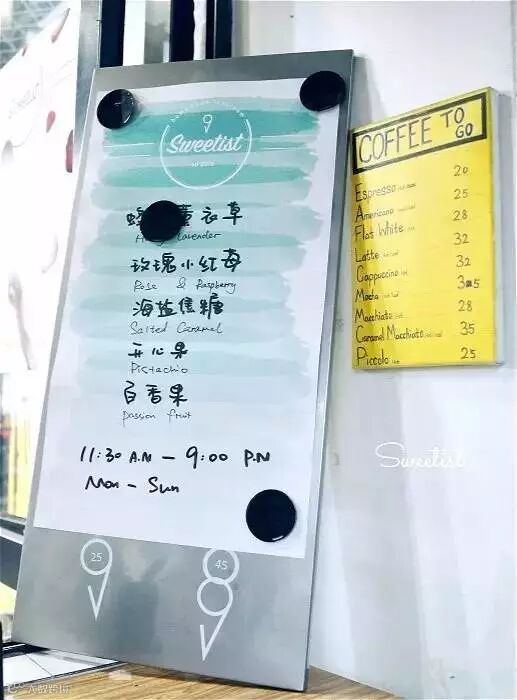 Sweetist
衣草
lavender
玫瑰小红莓
Rose & Raspberry
海盐焦糖
Salted Caramel
开心果
Pistachio
百香果
passion fruit
11:30 A.M – 9:00 P.M
Mon – Sun
25
45
COFFEE TO GO
Espresso 20
Americano 25
Flat White 28
Latte 32
Cappuccino 32
Mocha 35
Macchiato 28
Caramel Macchiato 35
Piccolo 25
Sweetist